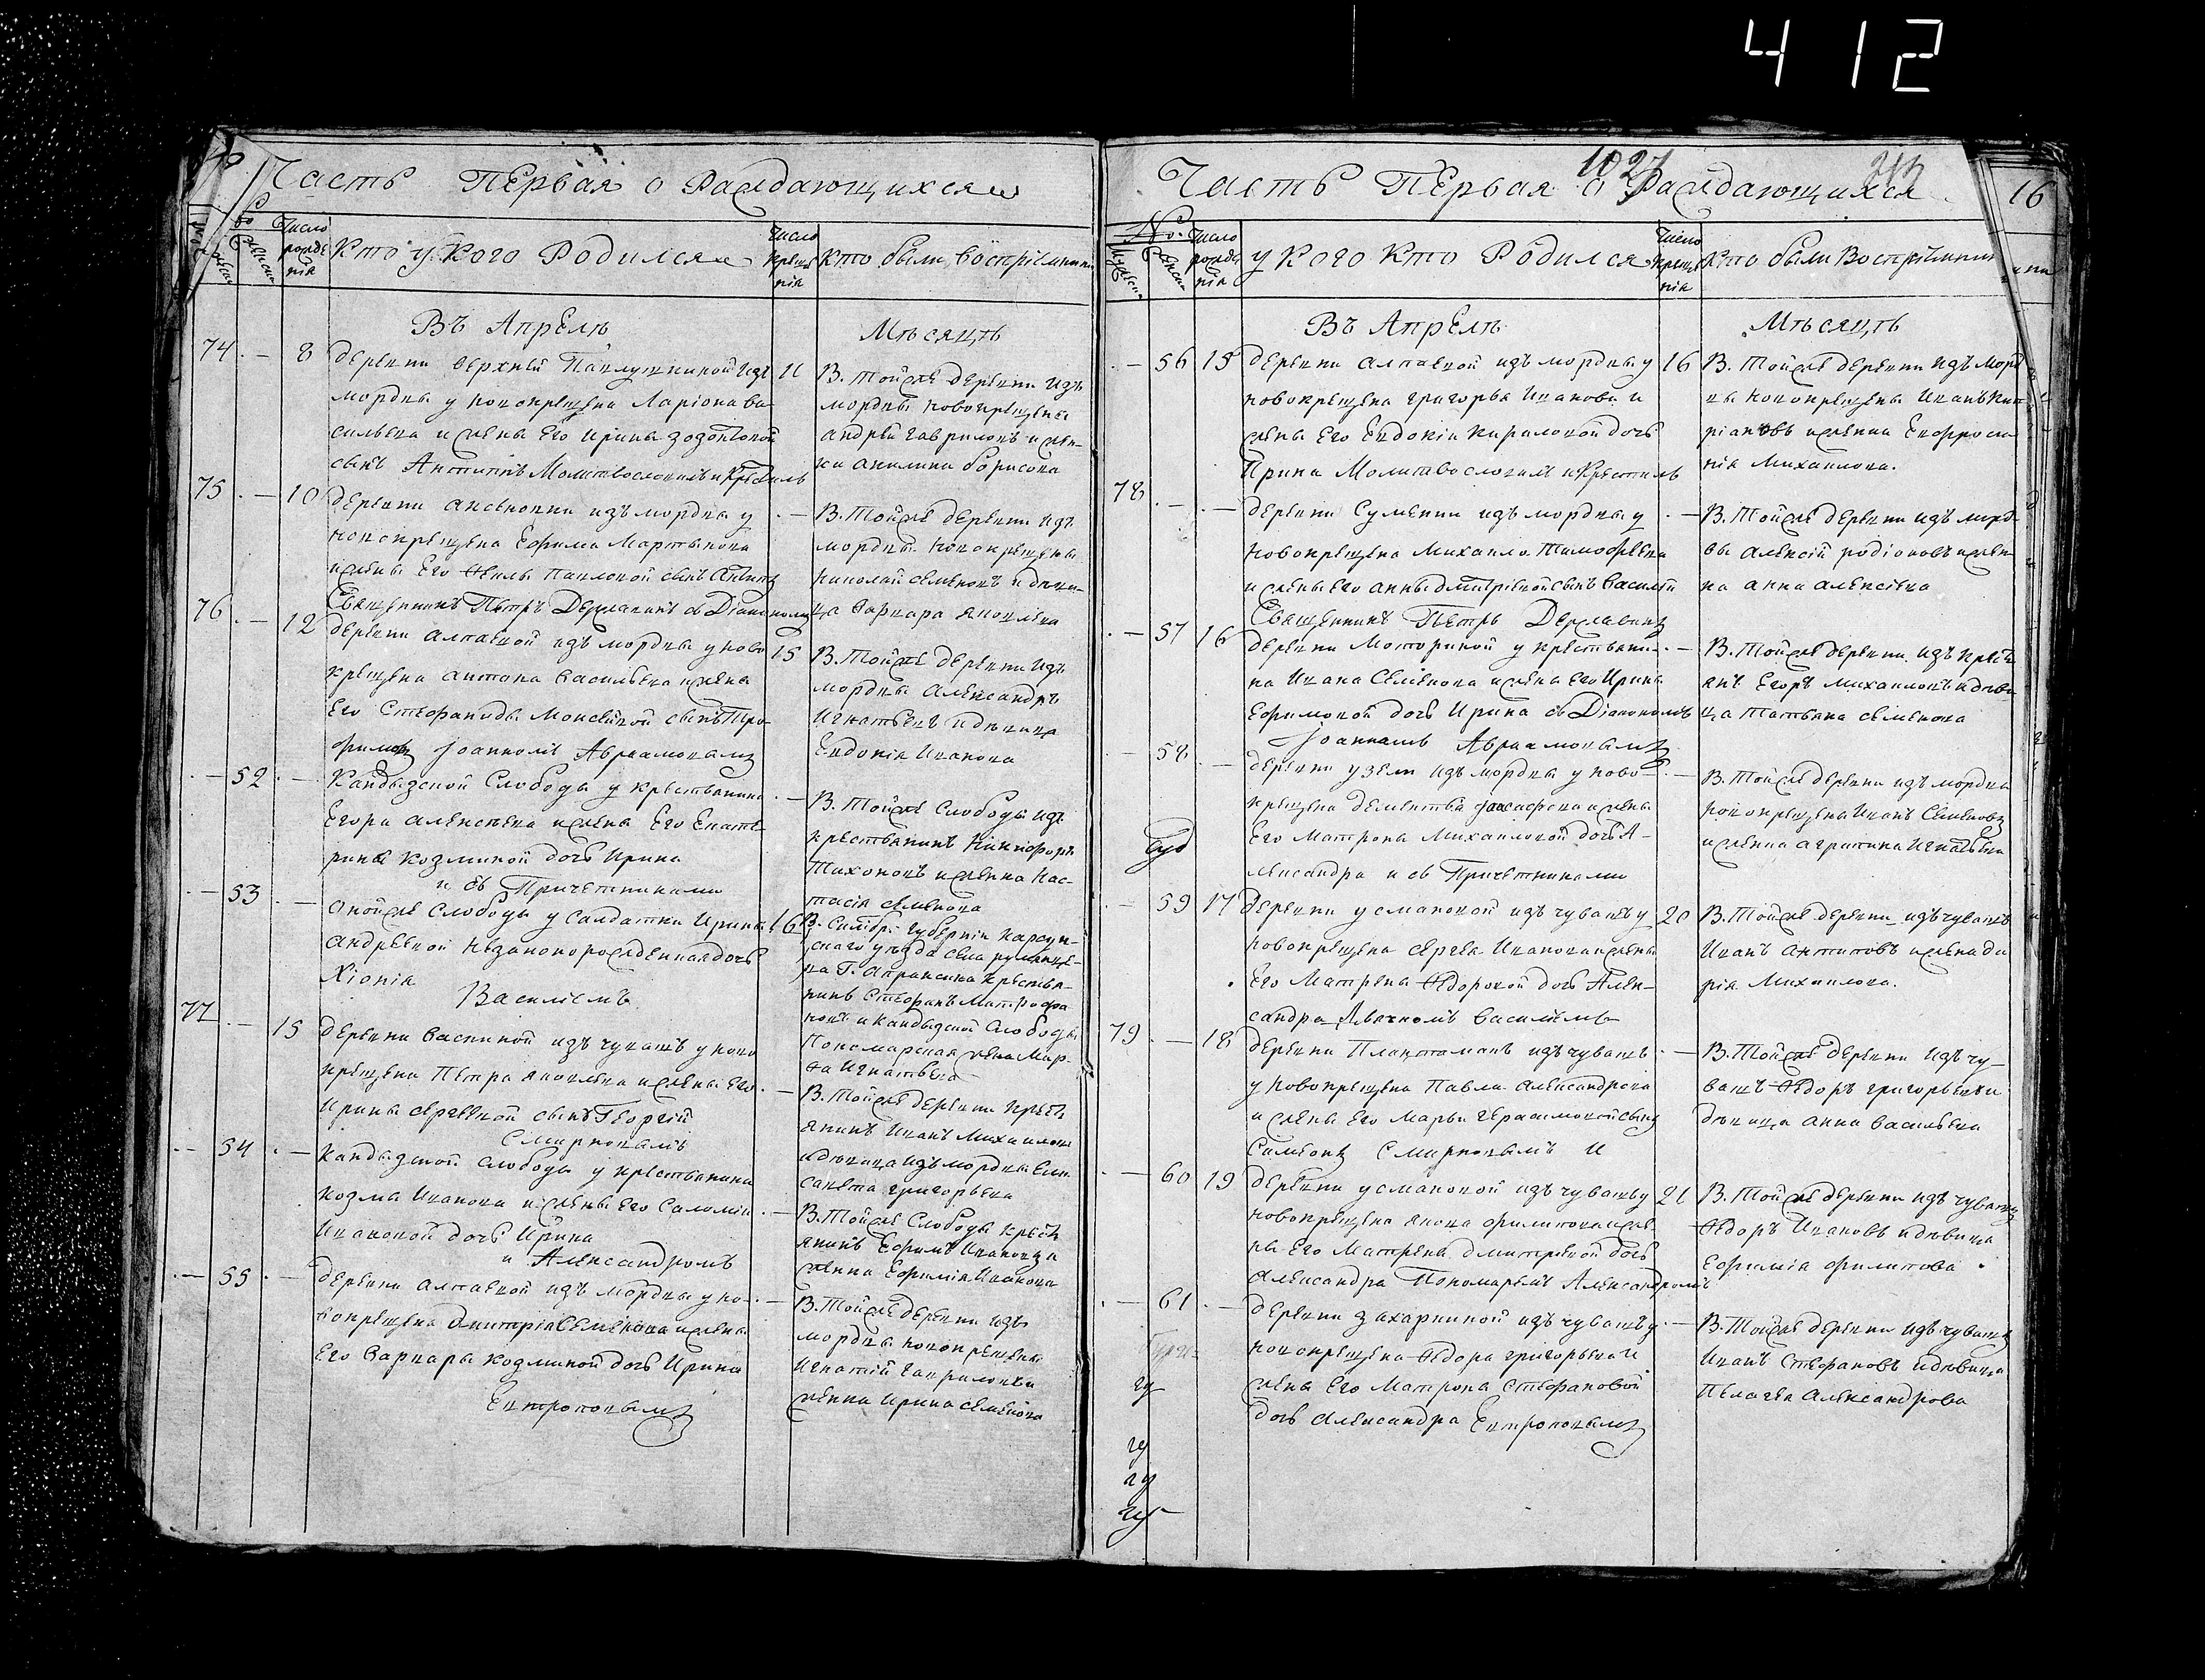 412
Часть Первая о Раждающихся
Число рожденія
Кто у Кого Родился
Число крещенія
кто были Воспріемники
Въ Апрелѣ
Мѣсяцѣ
74 — 8 деревни верхней Павлушкиной изъ
мордвы у новокрещена Ларіона Ва-
сильева и жены Его Ирины
сынъ Антипъ Молитвословилъ и Крестилъ
11 В. Той же деревни изъ
мордвы новокрещены
андрей гавриловъ и жен-
ка акилина борисова
75 — 10 деревни аксенкин изъ мордвы у
новокрещена Ефима Мартынова
и жены Его Ѳеклы Павловой сынъ Антипъ
Священникъ Петръ Державинъ съ Діакономъ
— В. Той же деревни изъ
мордвы новокрещены
николай семеновъ и деви-
ца варвара яковлева
76 — 12 деревни алпаевой изъ мордвы у ново
крещена антона васильева и жены
Его Стефаниды Моисеевой сынъ Тро-
фимъ Іоанномъ Авраамовымъ
15 В. Той же деревни изъ
мордвы александръ
Игнатьевъ и девица
Евдокія Иванова
— 52 — Кандызской Слободы у крестьянина
Егора алексѣева и жены Его Екате-
рины козминой дочь Ирина
и съ Причетниками
— В. Той же Слободы изъ
крестьянинъ Никифоръ
Тихоновъ и женка Нас-
тасія семенова
— 53 — оной же Слободы у салдатки Ирины
андреевой незаконорожденная дочь
Хіонія
Василіемъ
16 В. Симбир: губерніи Карсун-
скаго уѣзда села
крестья-
нинъ Стефанъ Митрофа
новъ и кандызской слободы
Пономарская жена Мар-
ѳа Игнатьева
77 — 15 деревни васкиной изъ чувашъ у ново
крещена Петра яковлева и жены его
Ирины сергеевой сынъ Георгій
Смирновымъ
— В. Той же деревни крест
янинъ Иванъ Михаиловъ
и девица изъ мордвы Ели
савета григорьева
— 54 — Кандызской слободы у крестьянина
козмы Иванова и жены Его Саломіи
Ивановой дочь Ирина
и Александромъ
— В. Той же Слободы крест
янинъ Ефимъ Ивановъ и
женка Ефимія Иванова
— 55 — деревни алпаевой изъ мордвы у но-
вокрещена Дмитрія Семенова и жены
Его варвары козминой дочь Ирина
Евтроповымъ
— В. Той же деревни изъ
мордвы новокрещены
Игнатій гавриловъ и
женка Ирина семенова
1027
Часть Первая о Раждающихся
16
№
Число рожденія
у Кого Кто Родился
Число крещенія
Кто были Воспріемники
Въ Апрелѣ
Мѣсяцѣ
— 56 15 деревни алпаевой изъ мордвы у
новокрещена григорья Иванова и
жены Его Евдокіи Кириловой дочь
Ирина Молитвословилъ и Крестилъ
16 В. Той же деревни изъ Морд
вы новокрещены Иванъ Кип
ріановъ и женка Ефроси
нія Михаилова.
78 — — деревни Сумкин изъ мордвы у
новокрещена Михаила Тимофеева
и жены его анны дмитріевой сынъ василій
Священникъ Петръ Державинъ
— В. Той же деревни изъ морд-
вы алексій родіоновъ и жен
ка анна алексіева
— 57 16 деревни Моториной у крестьяни-
на Ивана Семенова и жены Его Ирины
Ефимовой дочь Ирина съ Діакономъ
Іоанномъ Авраамовымъ
— В. Той же деревни изъ крест
янъ Егоръ Михаиловъ и деви
ца Татьяна семенова
— 58 — деревни узели изъ мордвы у ново-
крещена дементья и жены
Его Матроны Михаиловой дочь А-
лександра и съ Причетниками
— В. Той же деревни изъ мордвы
новокрещены Иванъ Семеновъ
и женка агрипина Игнатьева
— 59 17 деревни усмановой изъ чувашъ у
новокрещена сергея Иванова и жены
Его Матрены Ѳедоровой дочь Алек-
сандра Дьячкомъ Василіемъ
20 В. Той же деревни изъ чувашъ
Иванъ антиповъ и женка да
рія Михаилова.
79 — 18 деревни изъ чувашъ
у новокрещена Павла александрова
и жены Его Марьи герасимовой сынъ
Симеонъ Смирновымъ И
— В. Той же деревни изъ чу-
вашъ Ѳедоръ григорьевъ и
девица анна васильева
— 60 19 деревни усмановой изъ чувашъ у
новокрещена якова филипова и же-
ны Его Матрены дмитревой дочь
александра Пономаремъ Александромъ
21 В. Той же деревни изъ чувашъ
Ѳедоръ Ивановъ и девица
Ефимія филипова
— 61 — деревни захаркиной изъ чувашъ у
новокрещена Ѳедора григорьева и
жены Его Матроны Стефановой
дочь александра Евтроповымъ
— В. Той же деревни изъ чувашъ
Иванъ Стефановъ и девица
Пелагея Александрова